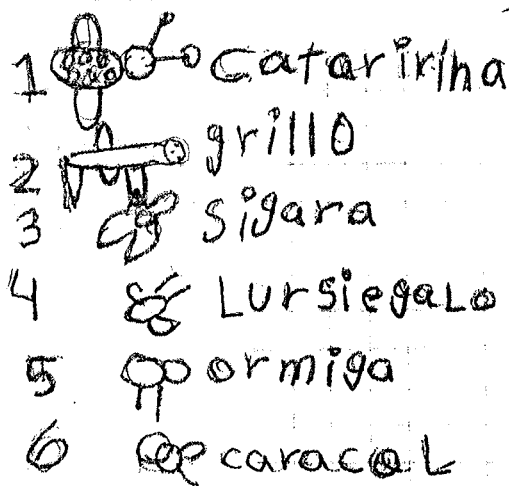 1 cataririna
2 grillo
3 sigara
4 Lursiegalo
5 ormiga
6 caracol